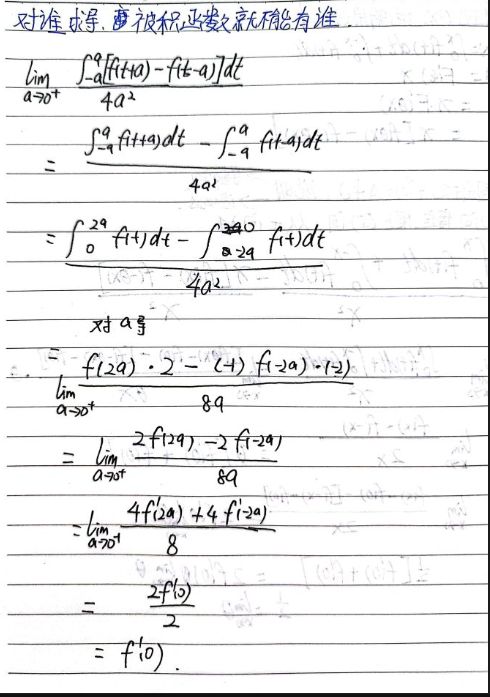 对谁求导,被积函数就不能有谁.
lim a→0⁺ ∫₋ₐᵃ[f(t+a)-f(t-a)]dt / 4a²
= ∫₋ₐᵃ f(t+a)dt - ∫₋ₐᵃ f(t-a)dt / 4a²
= ∫₀²ᵃ f(t)dt - ∫₋₂ₐ⁰ f(t)dt / 4a²
对a导
= lim a→0⁺ f(2a)·2 - (-1)f(-2a)·(-2) / 8a
= lim a→0⁺ 2f(2a) - 2f(-2a) / 8a
= lim a→0⁺ 4f'(2a) + 4f'(-2a) / 8
= 2f'(0) / 2
= f'(0).